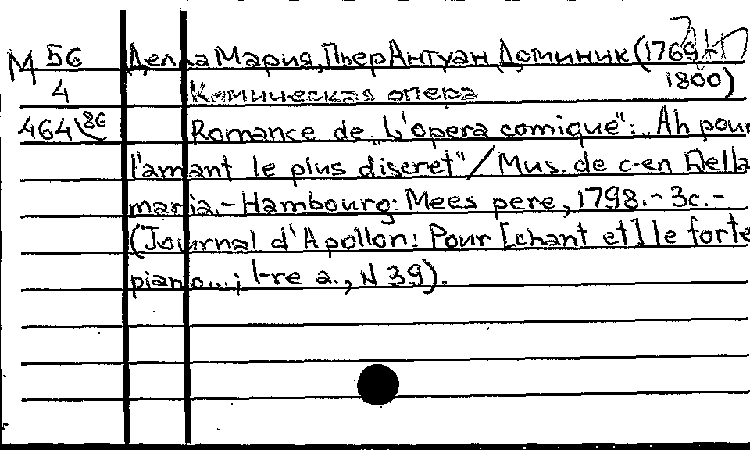 М 56 Делла Мария, Пьер Антуан Доминик (1769-
4 Комическая опера 1800)
464 86 Romance de "L'opera comique": "Ah pour
l'amant le plus discret" / Mus. de c-en Della
maria.- Hambourg: Mees pere, 1798.- 3c.-
(Journal d'Apollon: Pour [chant et] le forte
piano...; 1-re a., N 39).